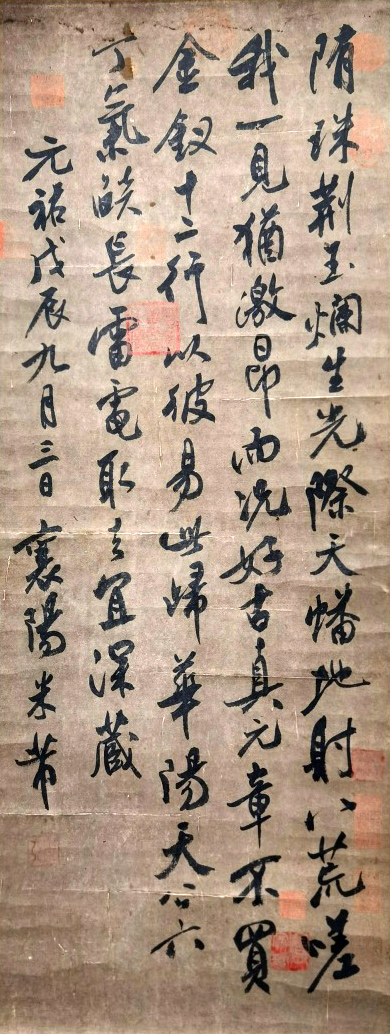 隋珠荆玉爛生光際天蟠地射八荒嗟
我一見猶激昂而況好古真元章不買
金釵十二行以彼易此歸華陽天公六
丁氣㷸長雷電取去宜深藏
元祐戊辰九月三日襄陽米芾